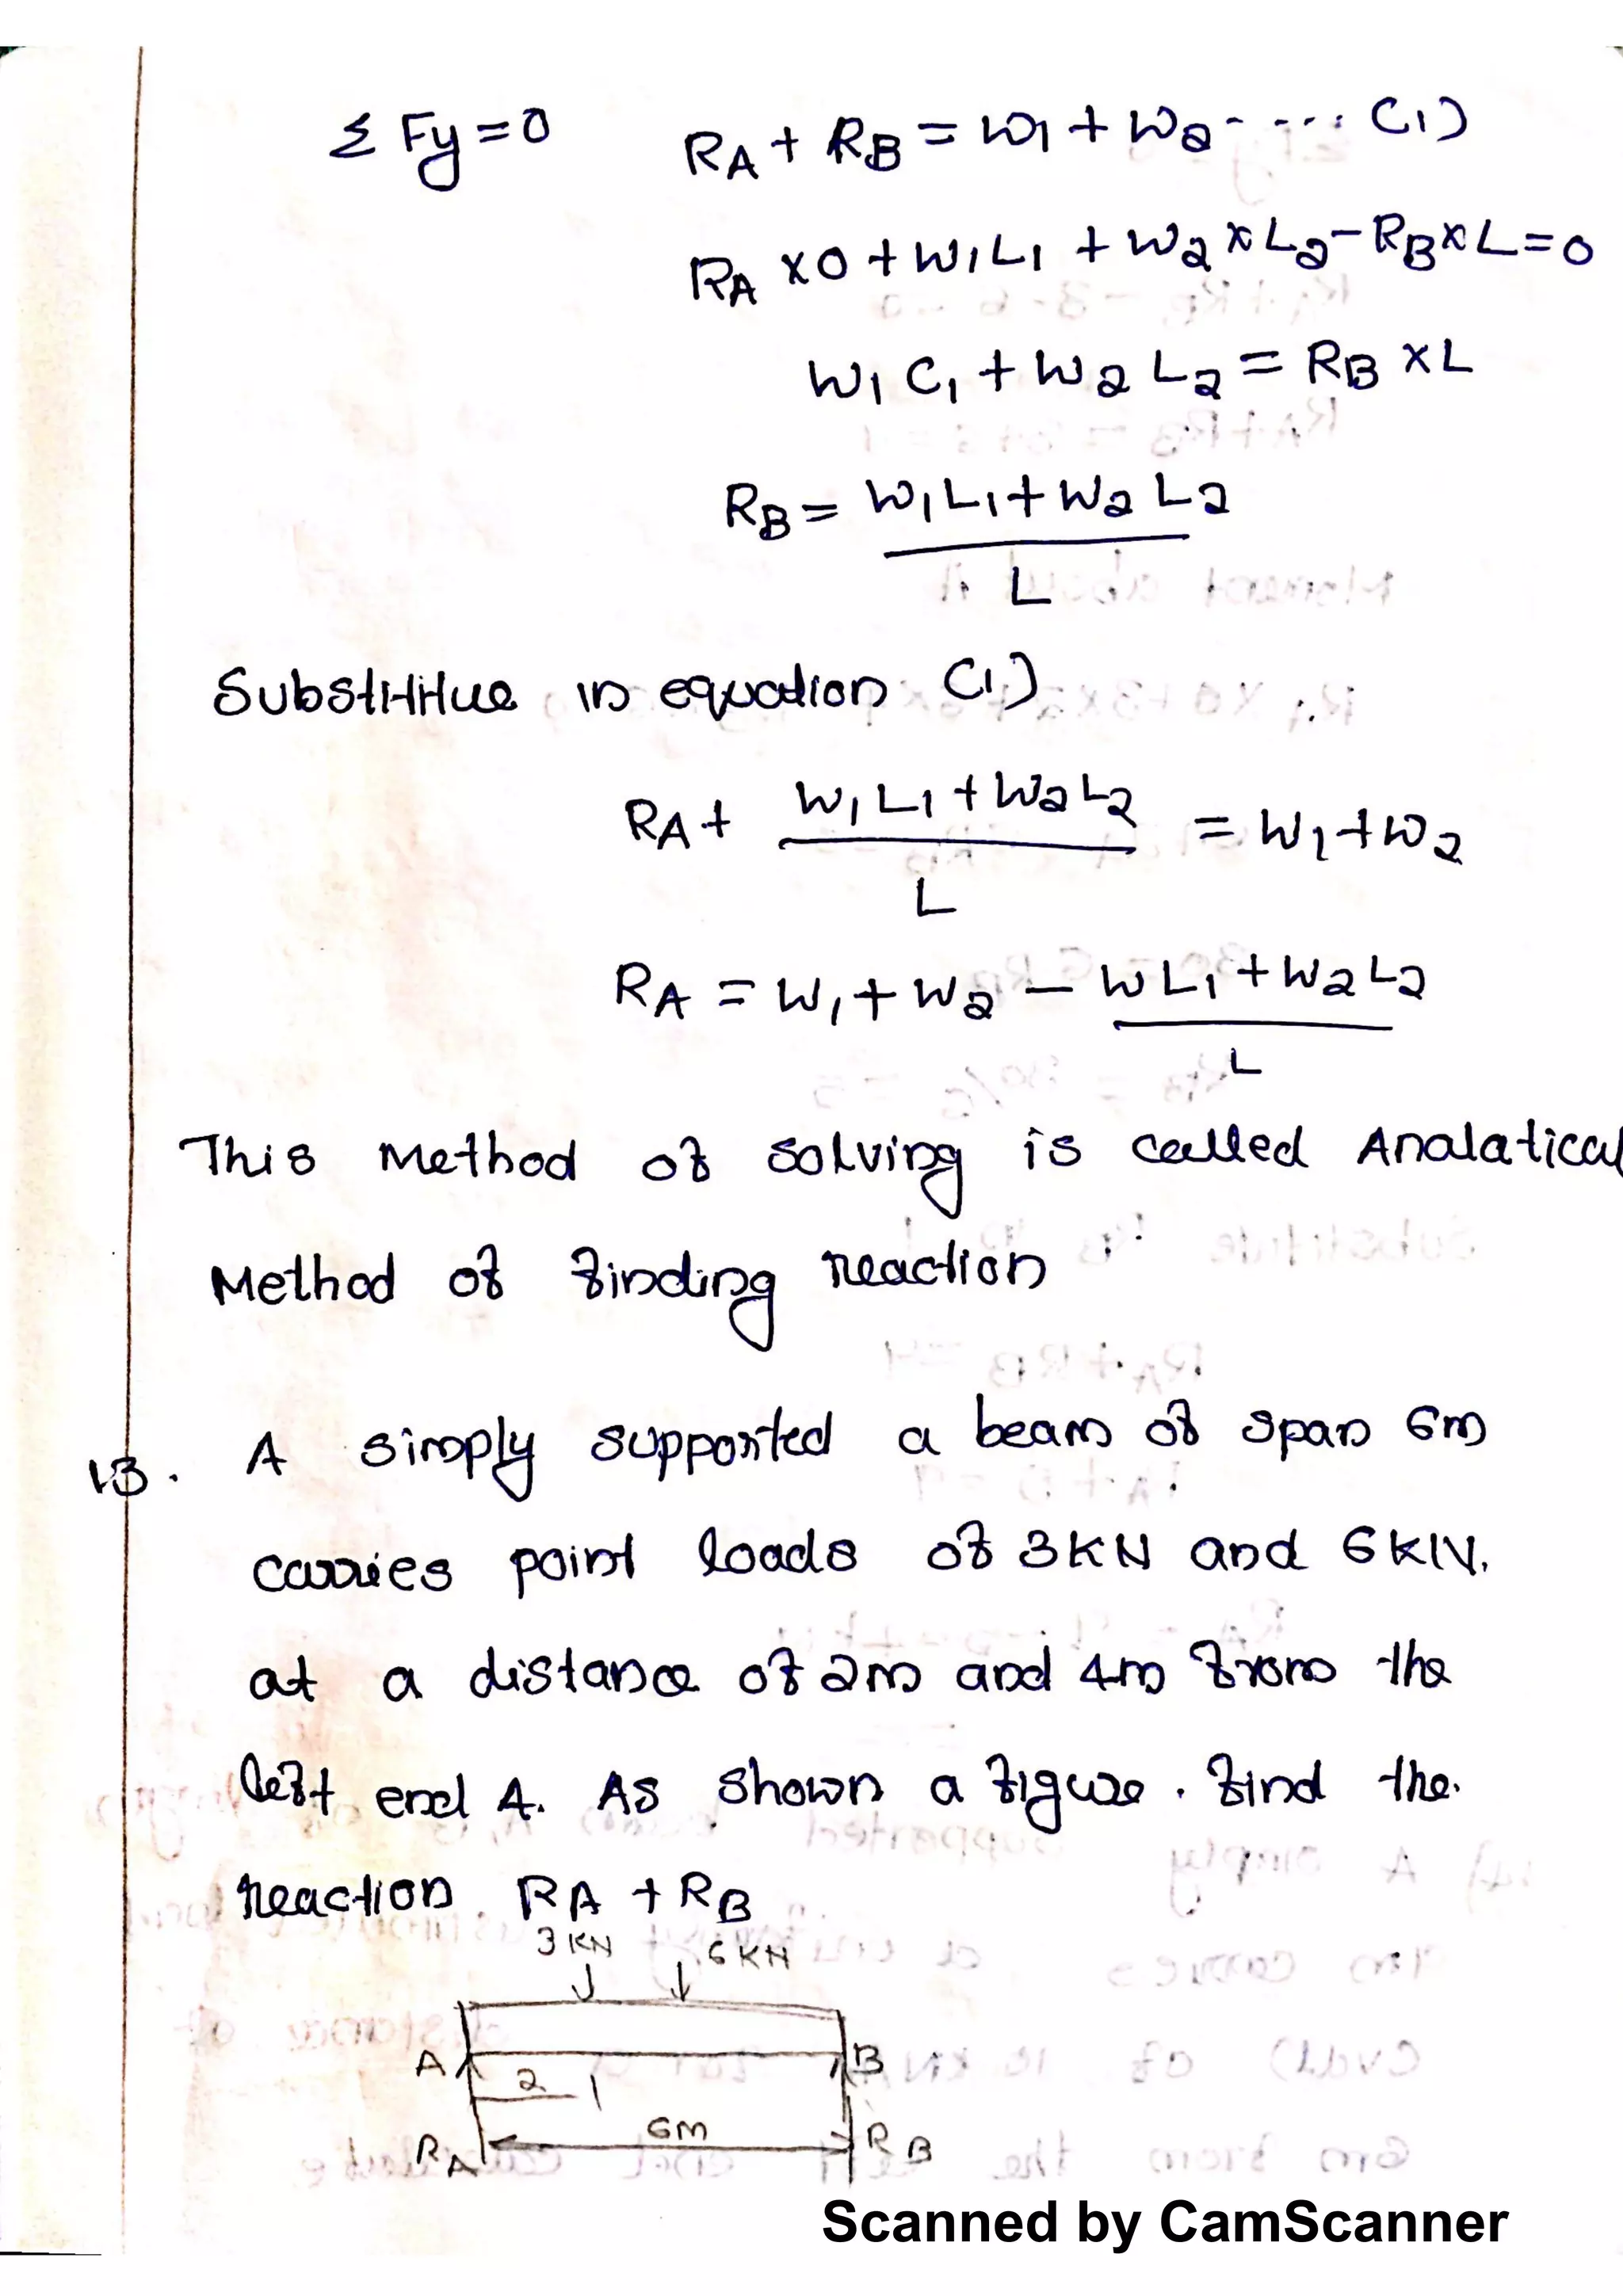 Σ Fy=0 RA + RB = W1 + W2 - - - - . (1)
RA x0 + W1L1 + W2 x L2 - RB x L = 0
W1 C1 + W2 L2 = RB x L
RB = W1L1 + W2 L2
L
Substitue in equation (1)
RA + W1 L1 + W2L2 = W1 + W2
L
RA = W1 + W2 - WL1 + W2L2
L
This Method of solving is called Analatical
Method of finding reaction
13. A simply supported a beam of span 6m
carries point loads of 3KN and 6KN.
at a distance of 2m and 4m from the
left end A. As shown a figure. find the
reaction RA + RB
3 KN 6 KN
A B
2
6m
RA RB
Scanned by CamScanner